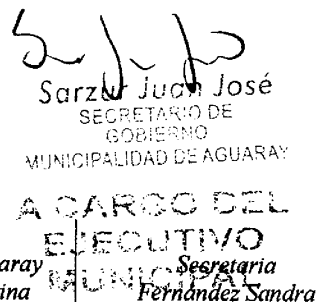 Sarzur Juan José
SECRETARIO DE
GOBIERNO
MUNICIPALIDAD DE AGUARAY
A CARGO DEL
EJECUTIVO
MUNICIPAL
aray
ina
Secretaria
Fernández Sandra